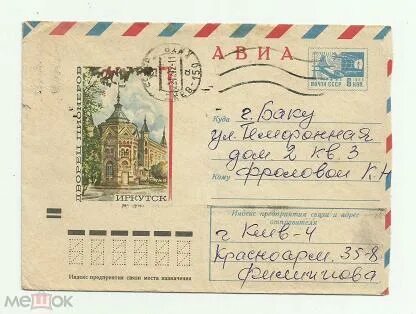 АВИА
ПОЧТА СССР
6 КОП.
ДВОРЕЦ ПИОНЕРОВ
ИРКУТСК
Куда г. Баку
ул. Телефонная
дом 2 кв. 3
Кому Фроловой К.Н
Индекс предприятия связи и адрес отправителя
г Киев-4
Красноарм. 35-8
Филиппова
Индекс предприятия связи места назначения
МЕШОК